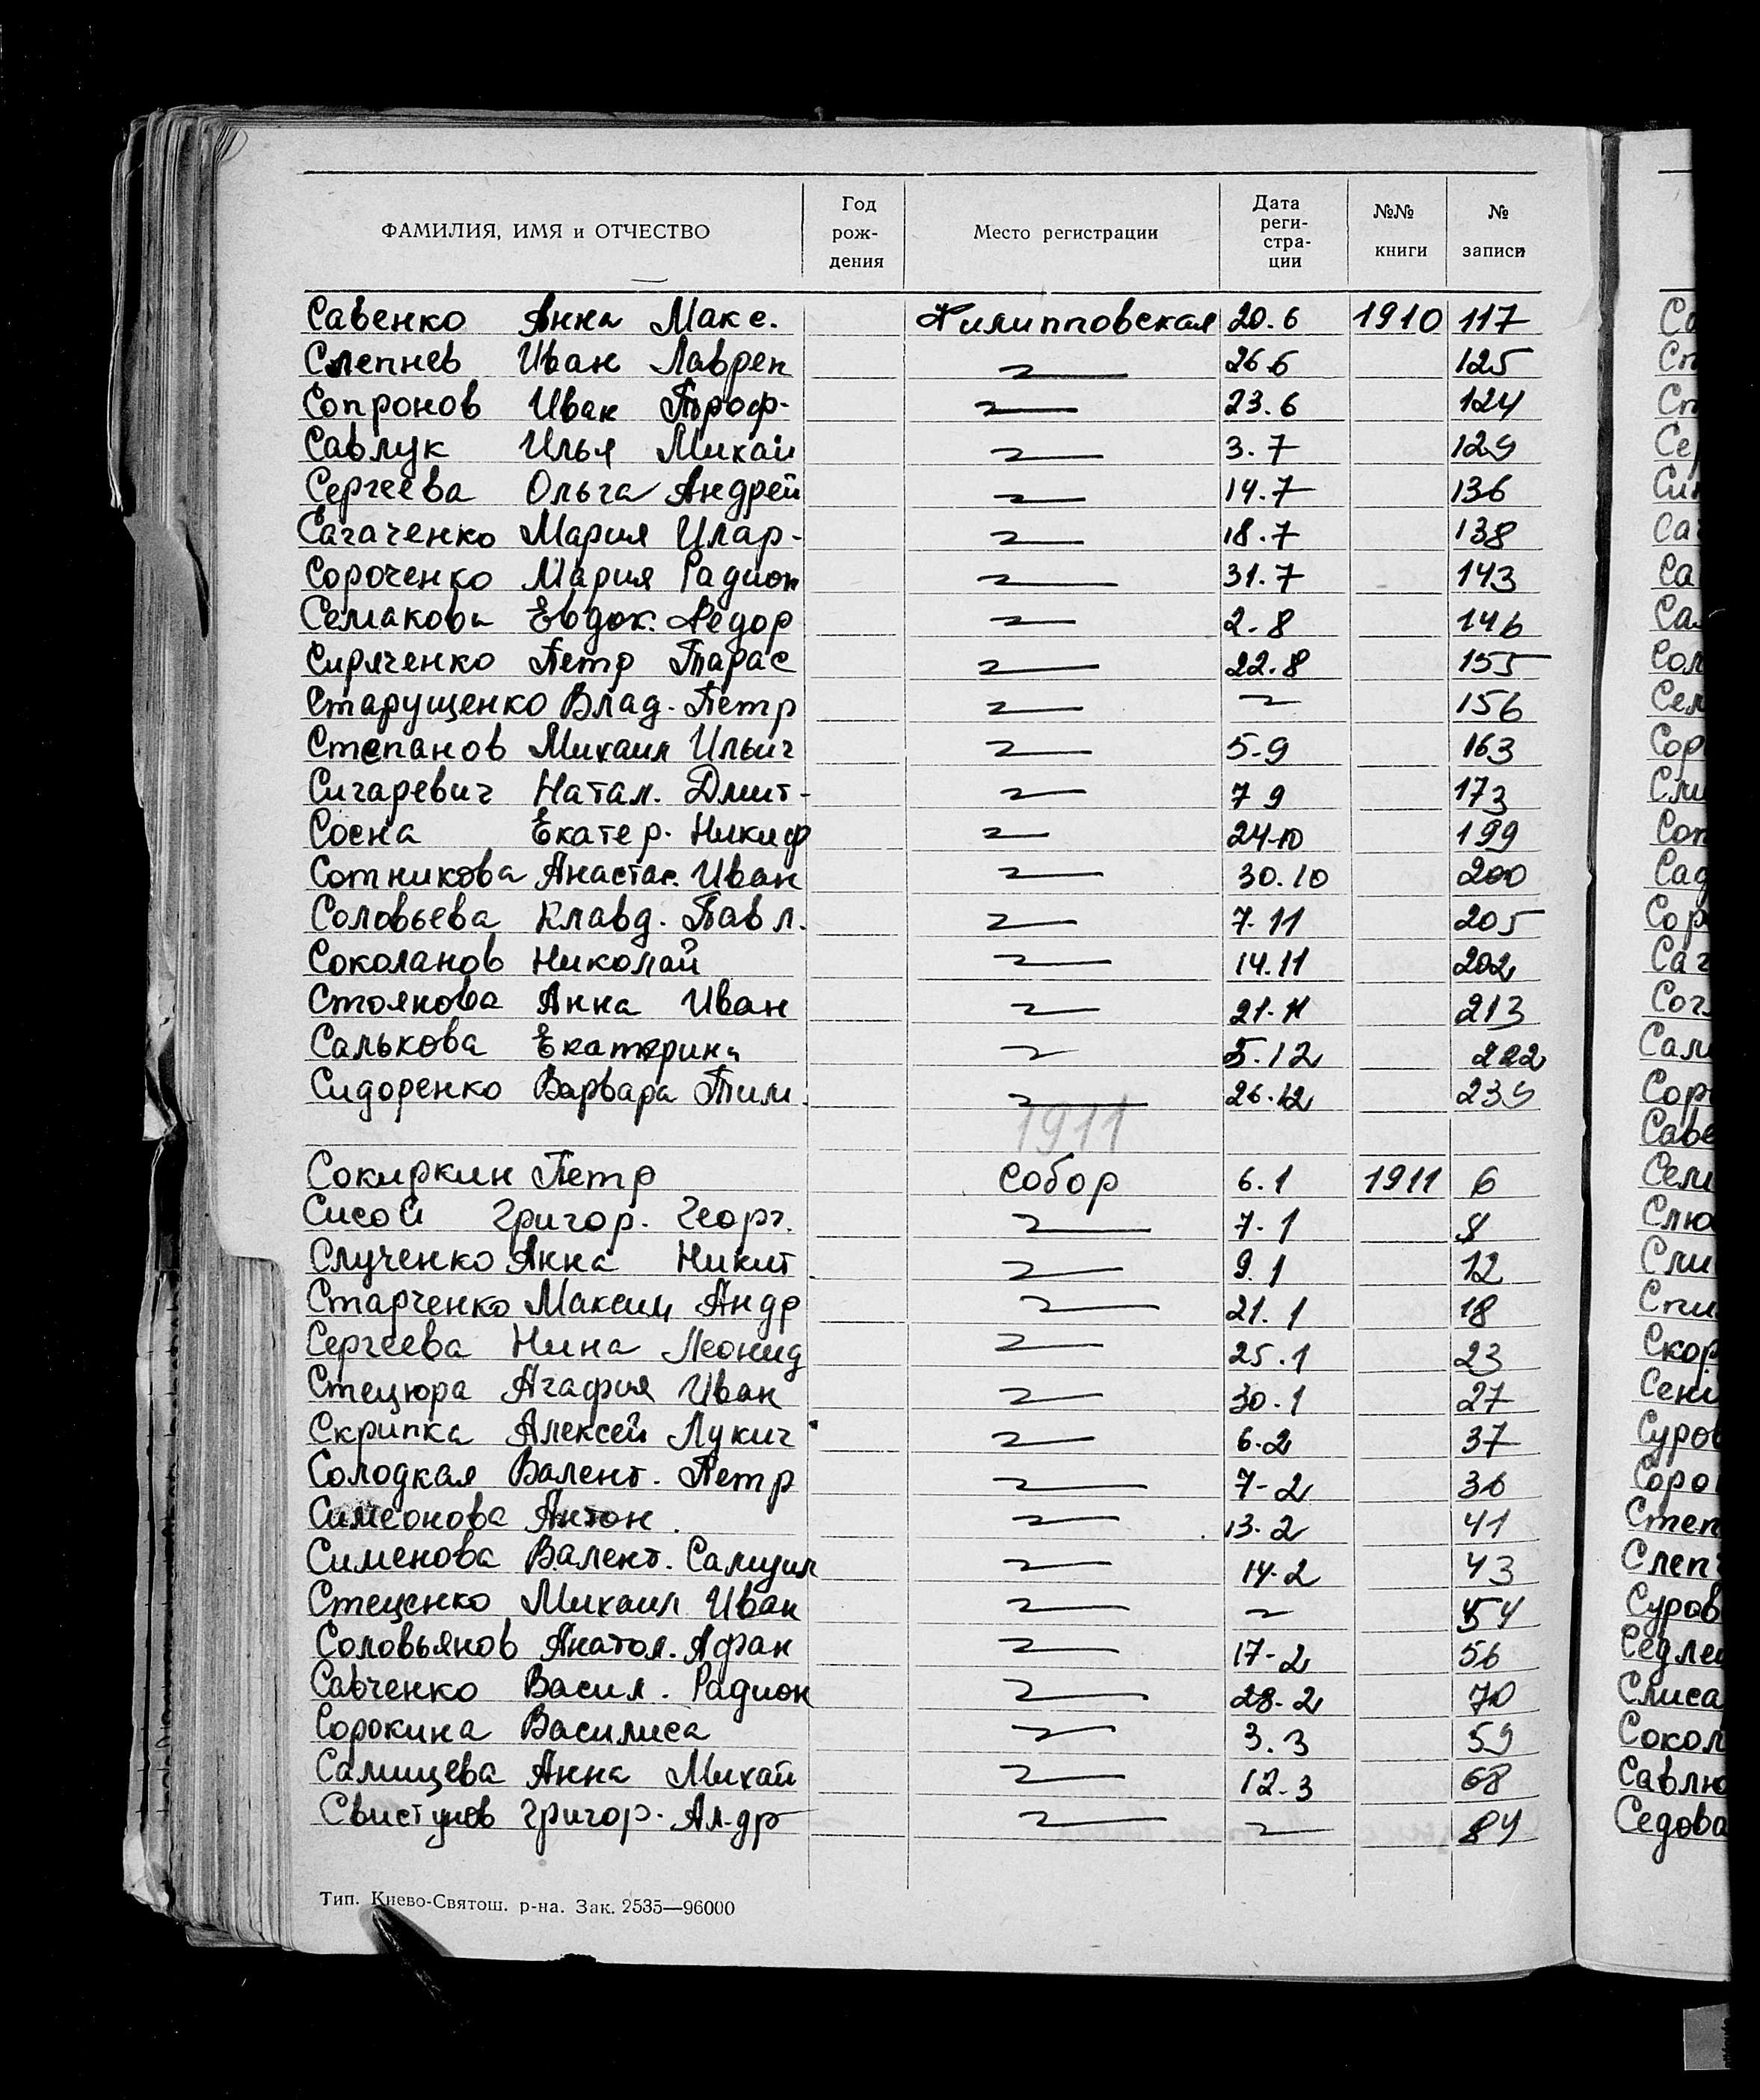 ФАМИЛИЯ, ИМЯ и ОТЧЕСТВО Год рож- дения Место регистрации Дата реги- стра- ции №№ книги № записи
Савенко Анна Макс. Филипповская 20.6 1910 117
Слепнев Иван Лаврен 26 6 125
Сопронов Иван Троф- 23.6 124
Савлук Илья Михай 3.7 129
Сергеева Ольга Андрей 14.7 136
Сагаченко Мария Илар- 18.7 138
Сороченко Мария Радион 31.7 143
Семакова Евдок. Федор 2.8 146
Сиряченко Петр Тарас 22.8 155
Старущенко Влад. Петр 156
Степанов Михаил Ильич 5-9 163
Сигаревич Натал. Дмит- 7 9 173
Сосна Екатер. Никиф 24-10 199
Сотникова Анастас. Иван 30.10 200
Соловьева Клавд. Павл. 7.11 205
Соколанов Николай 14.11 202
Стоянова Анна Иван 21.11 213
Салькова Екатерина 5.12 222
Сидоренко Варвара Тим. 26.12 239
1911
Сокиркин Петр Собор 6.1 1911 6
Сисой Григор. Георг. 7.1 8
Слученко Анна Никит 9.1 12
Старченко Максим Андр 21.1 18
Сергеева Нина Леонид 25.1 23
Стецюра Агафия Иван 30.1 27
Скрипка Алексей Лукич 6.2 37
Солодкая Валент. Петр 7-2 36
Симеонова Антон. 13.2 41
Сименова Валент. Самуил 14.2 43
Стеценко Михаил Иван 54
Соловьянов Анатол. Афан 17-2 56
Савченко Васил. Радион 28.2 70
Сорокина Василиса 3.3 59
Салищева Анна Михай 12.3 68
Свистунов Григор. Ал-др 84
Тип. Киево-Святош. р-на. Зак. 2535—96000